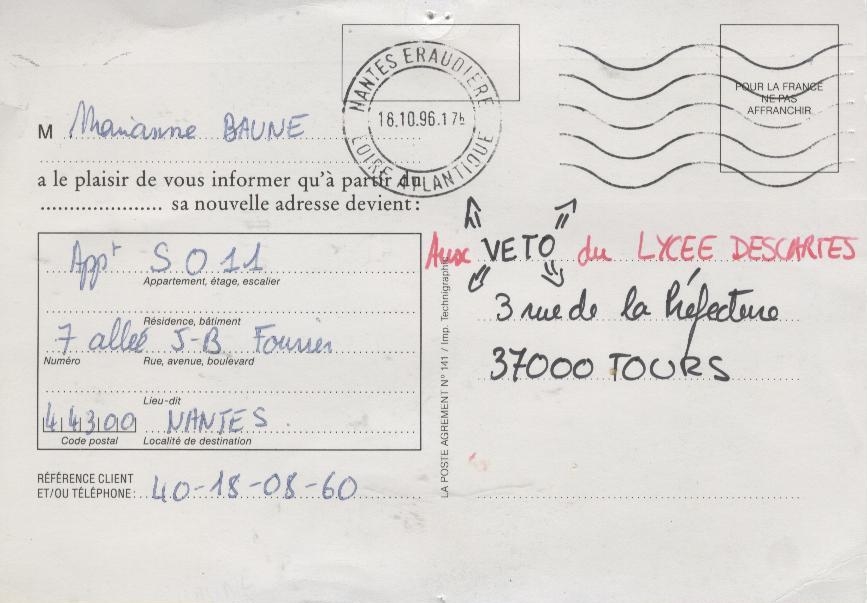 NANTES ERAUDIERE
18.10.96.17h
LOIRE ATLANTIQUE
POUR LA FRANCE
NE PAS
AFFRANCHIR
M Marianne BAUNE
a le plaisir de vous informer qu'à partir du
..................... sa nouvelle adresse devient :
Appt S 011
Appartement, étage, escalier
Résidence, bâtiment
7 allée J-B Fourrier
Numéro Rue, avenue, boulevard
Lieu-dit
44300 NANTES
Code postal Localité de destination
RÉFÉRENCE CLIENT
ET/OU TÉLÉPHONE : 40-18-08-60
LA POSTE AGREMENT N° 141 / Imp. Technigraphic
Aux VETO du LYCEE DESCARTES
3 rue de la Préfecture
37000 TOURS